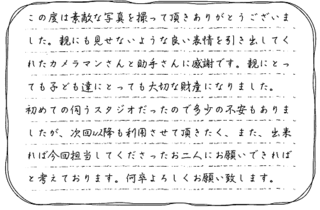 この度は素敵な写真を撮って頂きありがとうございま
した。親にも見せないような良い表情を引き出してく
れたカメラマンさんと助手さんに感謝です。親にとっ
ても子ども達にとっても大切な財産になりました。
初めての伺うスタジオだったので多少の不安もありま
したが、次回以降も利用させて頂きたく、また、出来
れば今回担当してくださったお二人にお願いできれば
と考えております。何卒よろしくお願い致します。